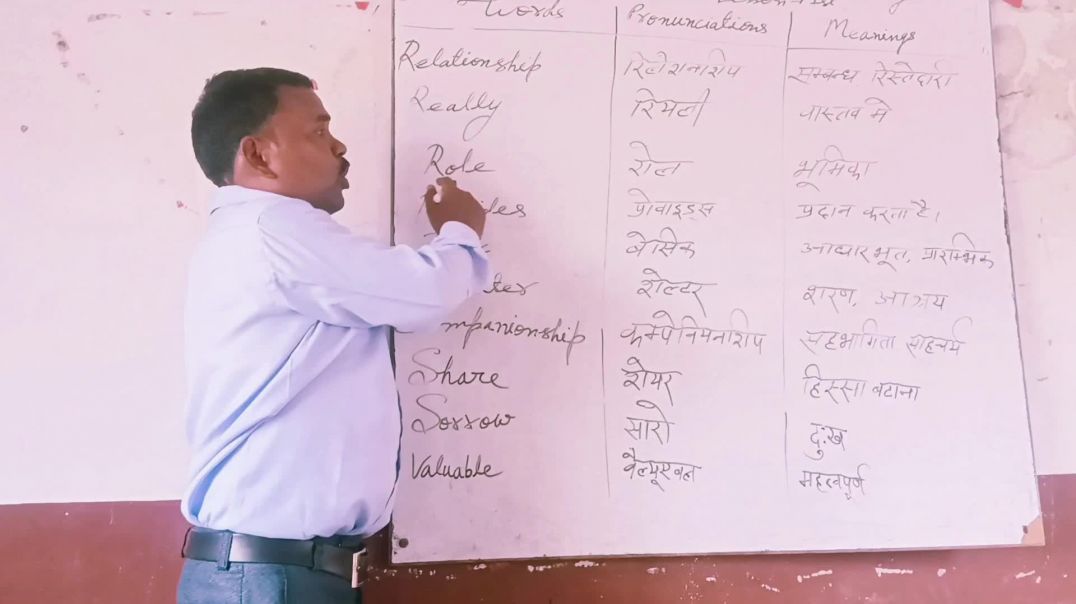 Words Pronunciations Meanings
Relationship रिलेशनशिप सम्बन्ध रिस्तेदारी
Really रियली वास्तव मे
Role रोल भूमिका
प्रोवाइड्स प्रदान करता है।
बेसिक आधारभूत, प्रारम्भिक
शेल्टर शरण, आश्रय
कम्पेनियनशिप सहभागिता साहचर्य
Share शेयर हिस्सा बटाना
Sorrow सारो दुःख
Valuable वैल्यूएबल महत्वपूर्ण